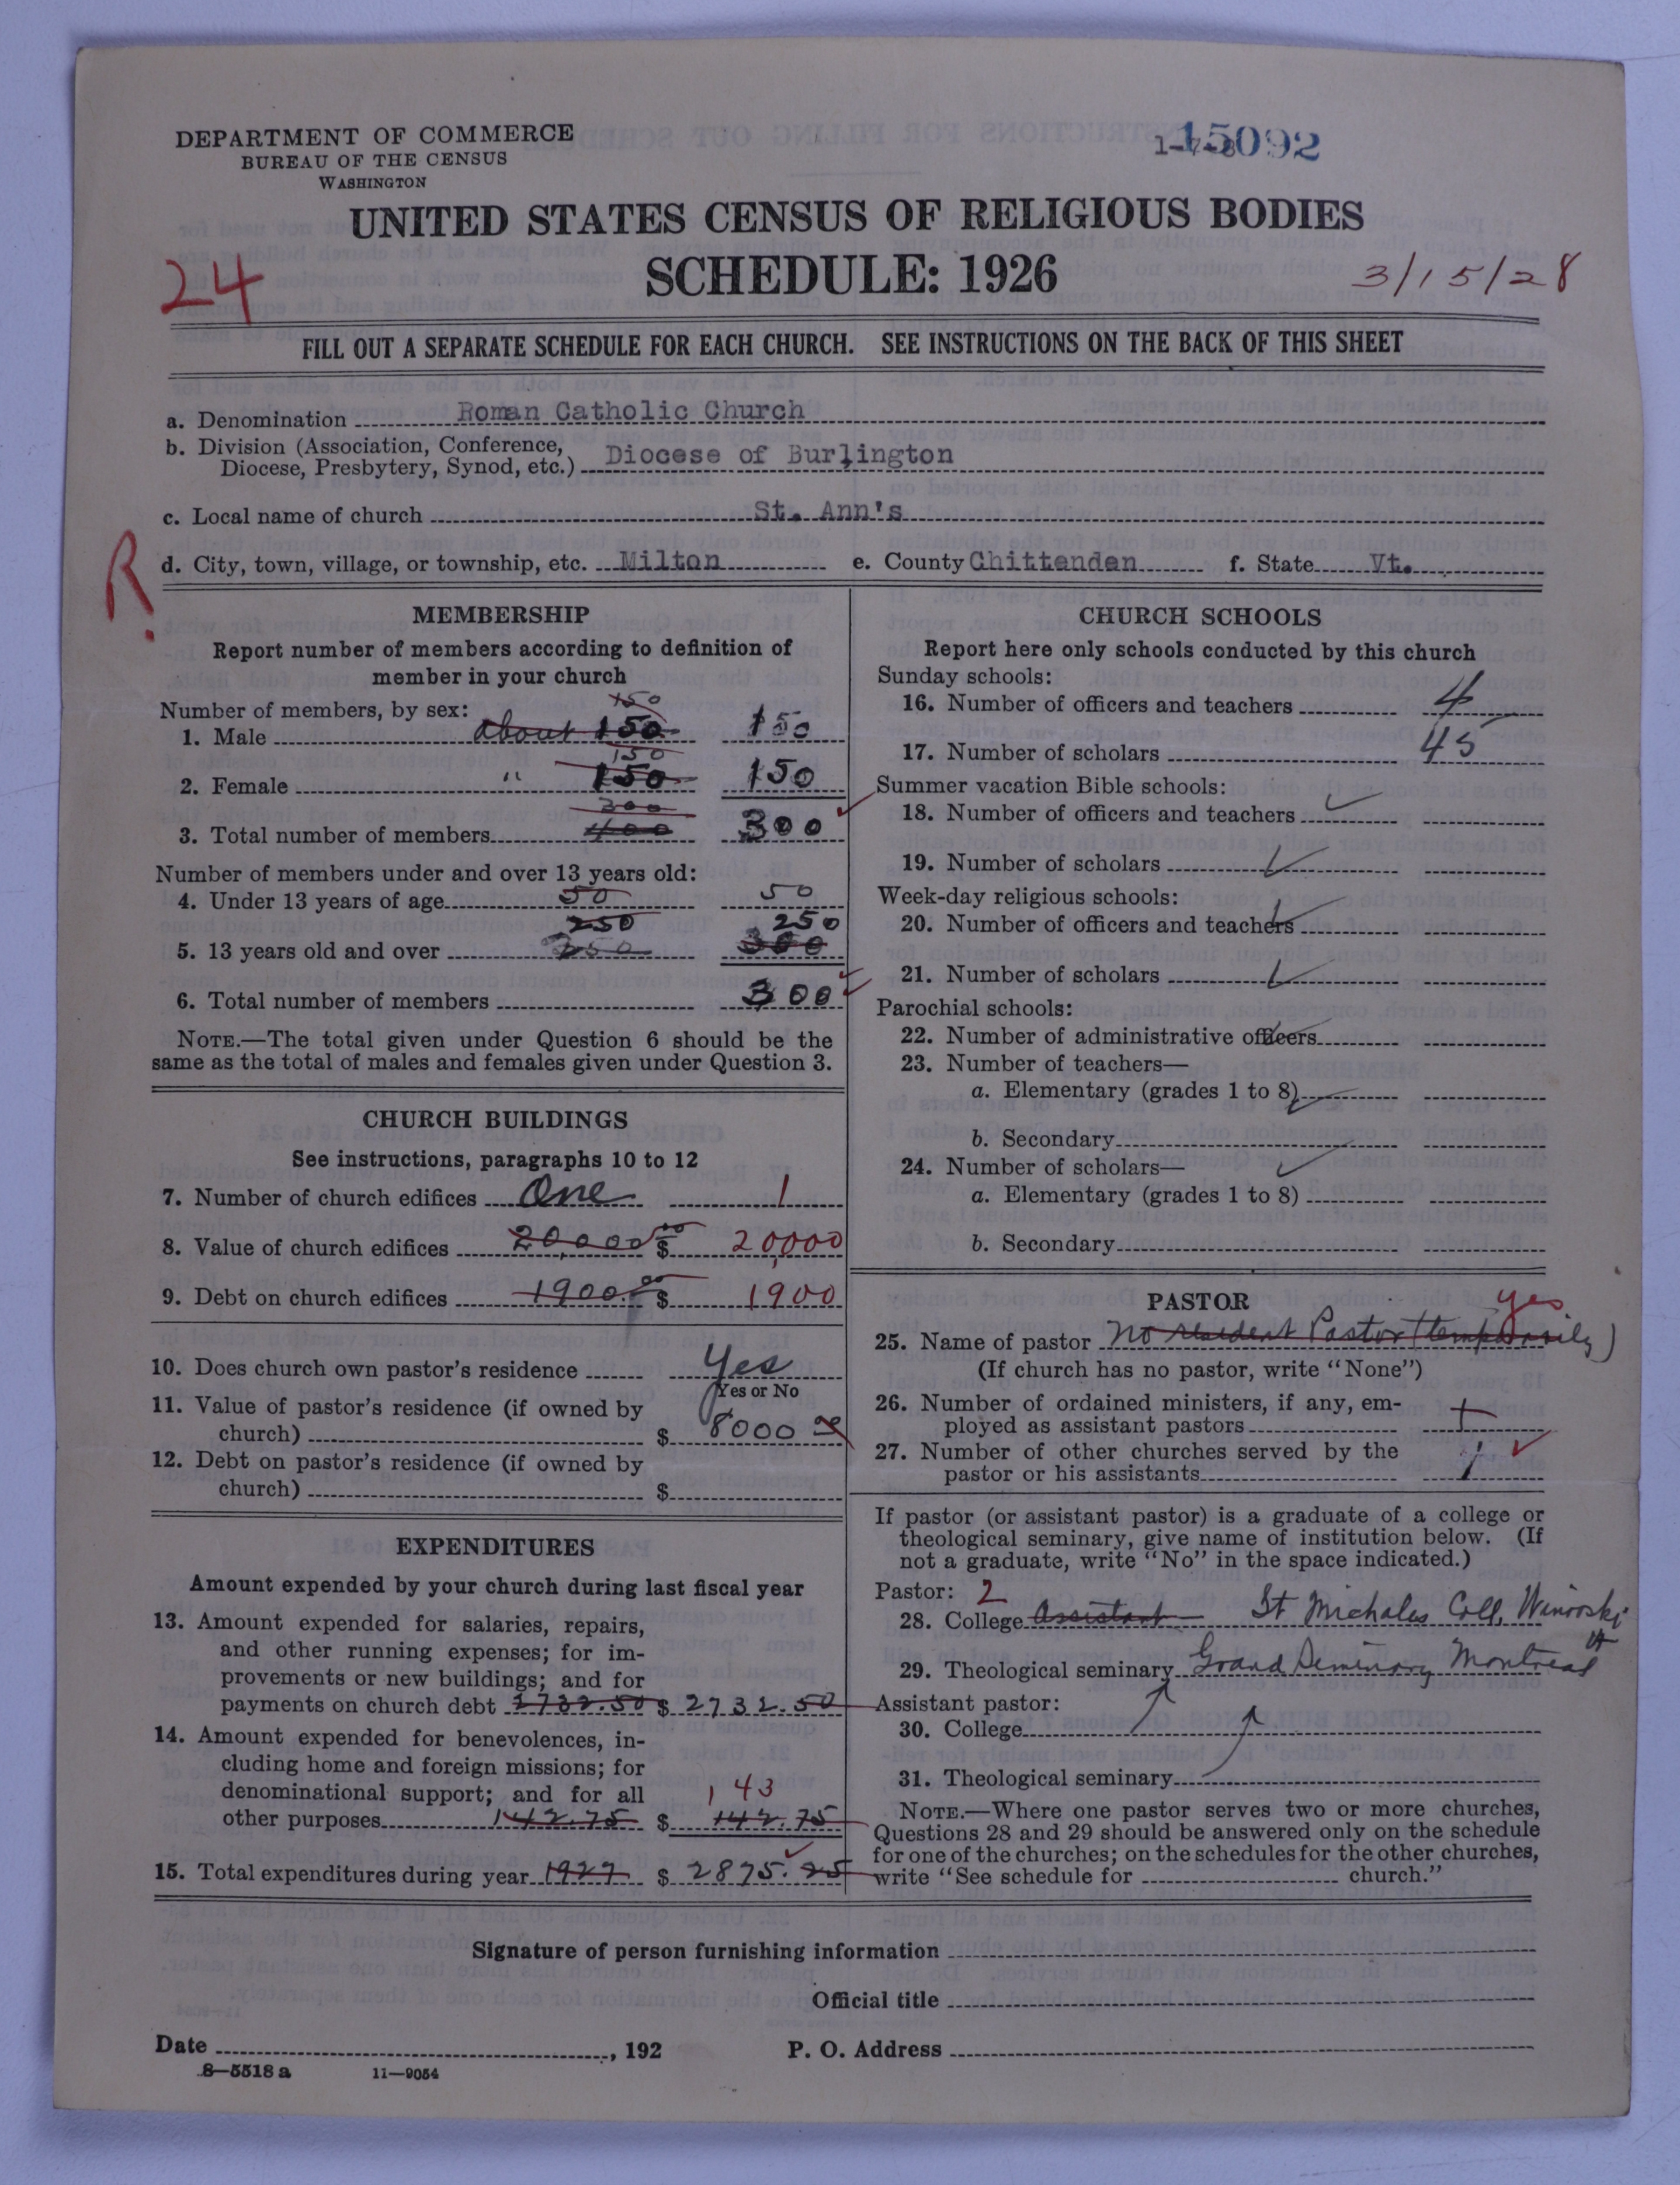 DEPARTMENT OF COMMERCE
BUREAU OF THE CENSUS
WASHINGTON
15092
UNITED STATES CENSUS OF RELIGIOUS BODIES
SCHEDULE: 1926
24
3/15/28
FILL OUT A SEPARATE SCHEDULE FOR EACH CHURCH. SEE INSTRUCTIONS ON THE BACK OF THIS SHEET
a. Denomination Roman Catholic Church
b. Division (Association, Conference,
Diocese, Presbytery, Synod, etc.) Diocese of Burlington
c. Local name of church St. Ann's
R.
d. City, town, village, or township, etc. Milton e. County Chittenden f. State Vt.
MEMBERSHIP
Report number of members according to definition of
member in your church
Number of members, by sex:
150
1. Male about 150 150
150
2. Female " 150 150
300
3. Total number of members 400 300
Number of members under and over 13 years old:
4. Under 13 years of age 50 50
250 250
5. 13 years old and over 350 300
6. Total number of members 300
NOTE.—The total given under Question 6 should be the
same as the total of males and females given under Question 3.
CHURCH BUILDINGS
See instructions, paragraphs 10 to 12
7. Number of church edifices One 1
8. Value of church edifices 20,000 00 $ 20,000
9. Debt on church edifices 1900 00 $ 1900
10. Does church own pastor's residence Yes
Yes or No
11. Value of pastor's residence (if owned by
church) $ 8000 00
12. Debt on pastor's residence (if owned by
church) $
EXPENDITURES
Amount expended by your church during last fiscal year
13. Amount expended for salaries, repairs,
and other running expenses; for im-
provements or new buildings; and for
payments on church debt 2732.50 $ 2732.50
14. Amount expended for benevolences, in-
cluding home and foreign missions; for
denominational support; and for all
143
other purposes 142.75 $ 142.75
15. Total expenditures during year 1927 $ 2875.25
CHURCH SCHOOLS
Report here only schools conducted by this church
Sunday schools:
16. Number of officers and teachers 4
17. Number of scholars 45
Summer vacation Bible schools:
18. Number of officers and teachers
19. Number of scholars
Week-day religious schools:
20. Number of officers and teachers
21. Number of scholars
Parochial schools:
22. Number of administrative officers
23. Number of teachers—
a. Elementary (grades 1 to 8)
b. Secondary
24. Number of scholars—
a. Elementary (grades 1 to 8)
b. Secondary
PASTOR
yes
25. Name of pastor No resident Pastor (temporarily)
(If church has no pastor, write "None")
26. Number of ordained ministers, if any, em-
ployed as assistant pastors
27. Number of other churches served by the
pastor or his assistants 1
If pastor (or assistant pastor) is a graduate of a college or
theological seminary, give name of institution below. (If
not a graduate, write "No" in the space indicated.)
Pastor: 2
28. College Assistant — St Michales Coll. Winooski
Vt
29. Theological seminary Grand Seminary Montreal
Assistant pastor:
30. College
31. Theological seminary
NOTE.—Where one pastor serves two or more churches,
Questions 28 and 29 should be answered only on the schedule
for one of the churches; on the schedules for the other churches,
write "See schedule for church."
Signature of person furnishing information
Official title
Date , 192 P. O. Address
8—5518 a 11—9054